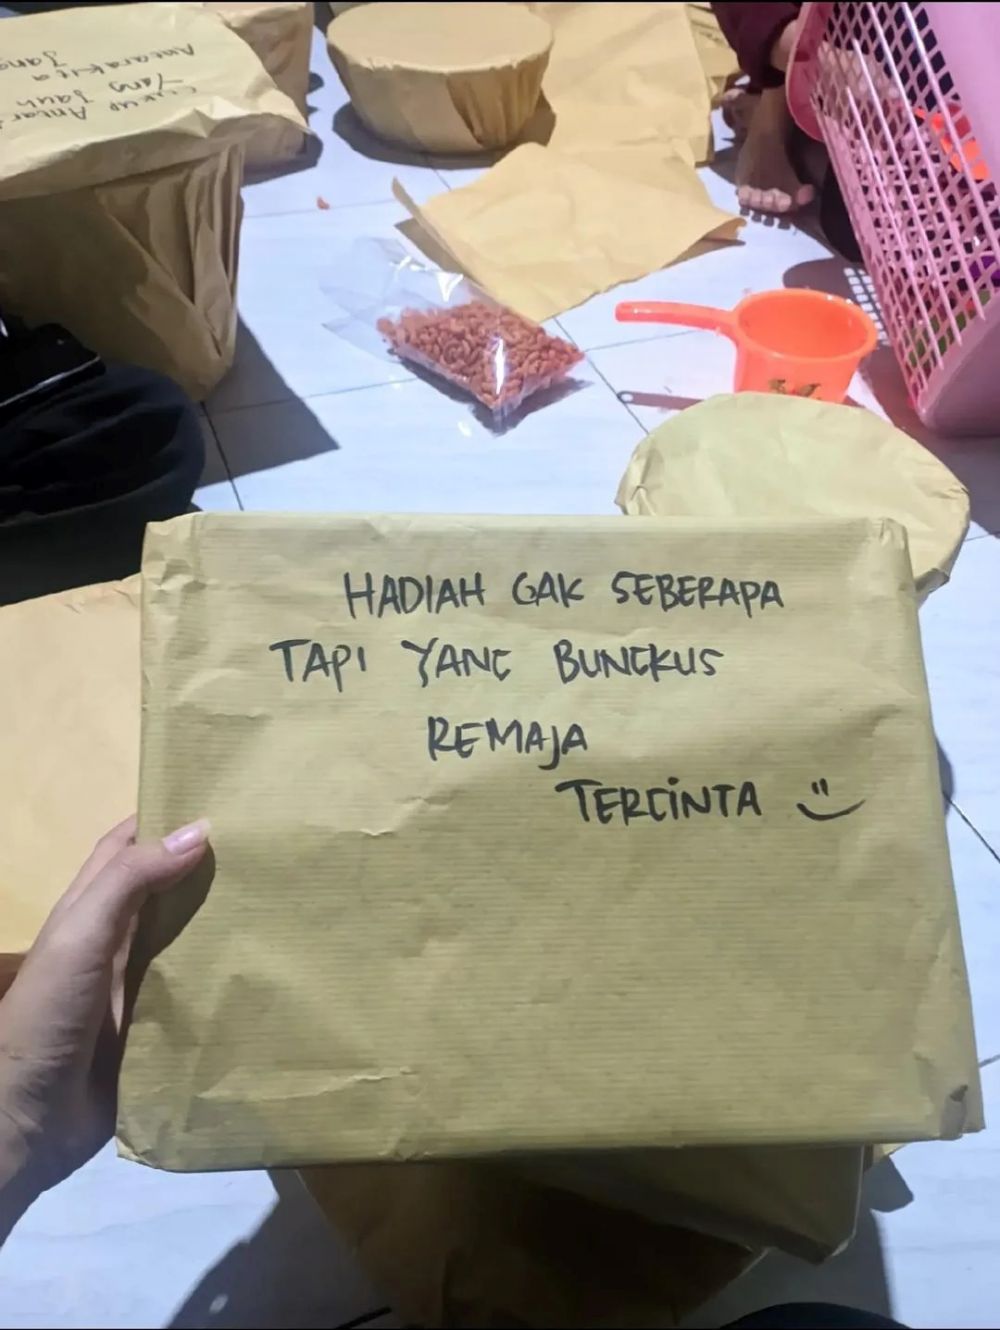 HADIAH GAK SEBERAPA
TAPI YANG BUNGKUS
REMAJA
TERCINTA
Antara Kita
Yang Jauh